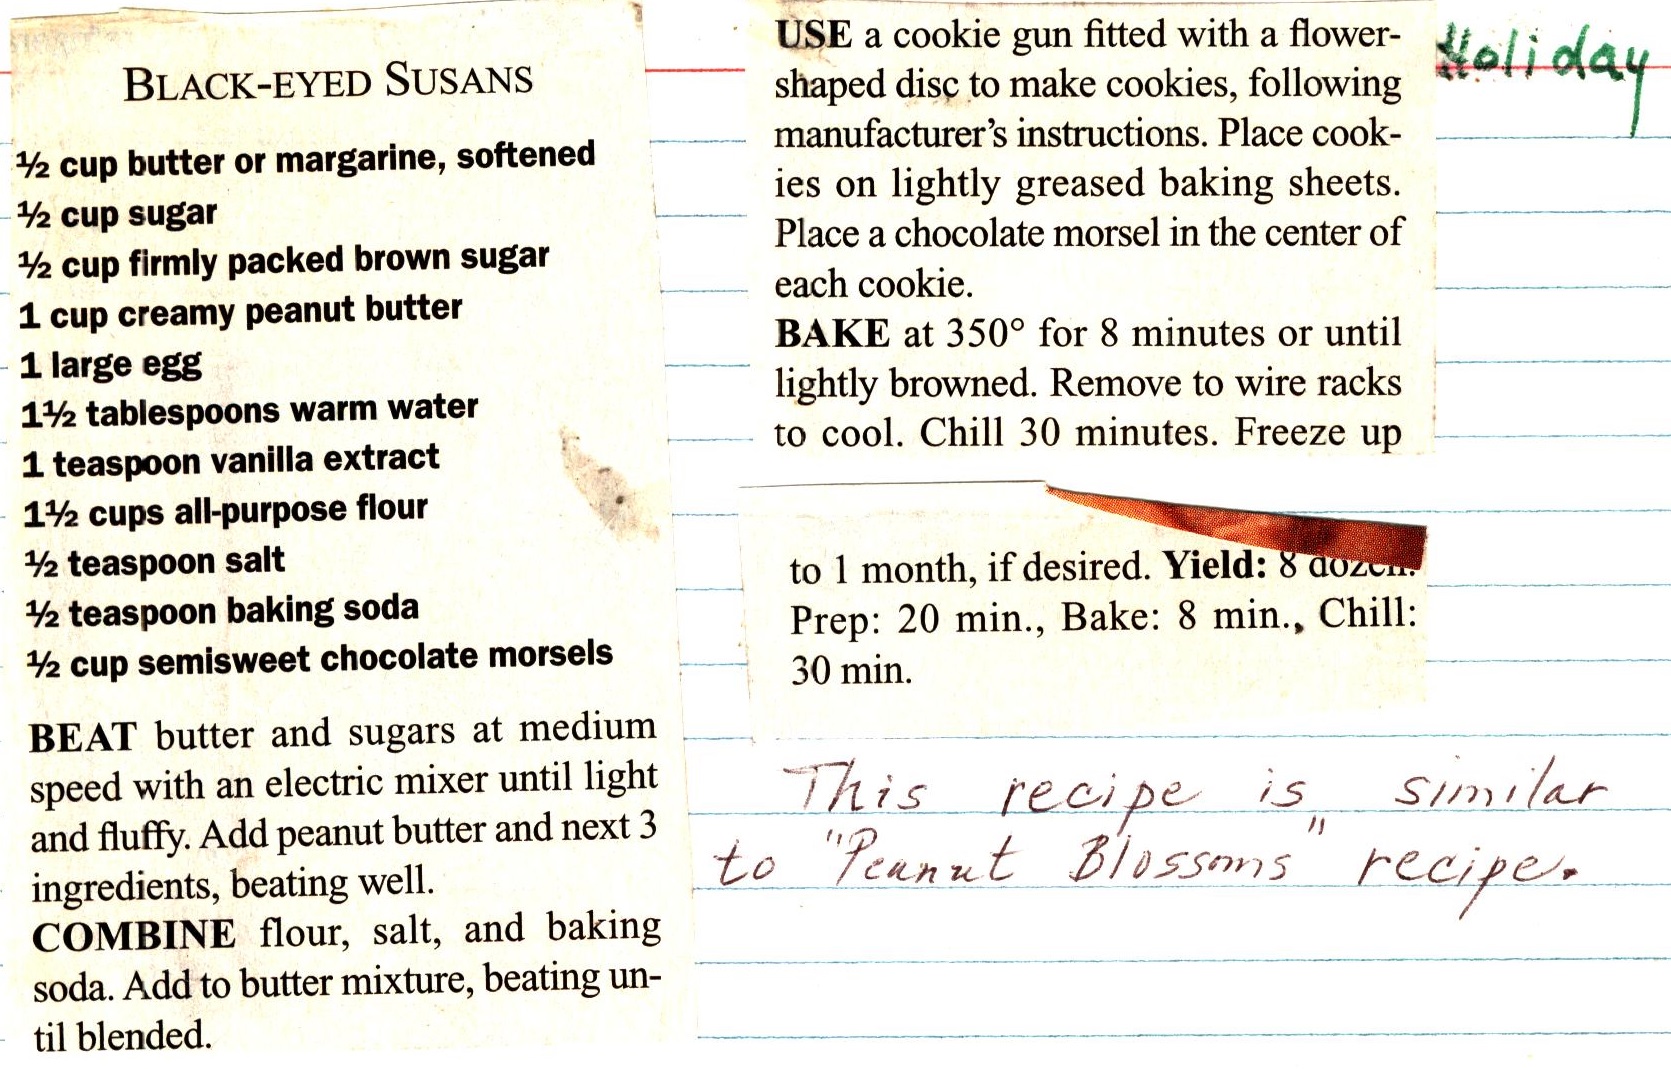 BLACK-EYED SUSANS
½ cup butter or margarine, softened
½ cup sugar
½ cup firmly packed brown sugar
1 cup creamy peanut butter
1 large egg
1½ tablespoons warm water
1 teaspoon vanilla extract
1½ cups all-purpose flour
½ teaspoon salt
½ teaspoon baking soda
½ cup semisweet chocolate morsels
BEAT butter and sugars at medium
speed with an electric mixer until light
and fluffy. Add peanut butter and next 3
ingredients, beating well.
COMBINE flour, salt, and baking
soda. Add to butter mixture, beating un-
til blended.
USE a cookie gun fitted with a flower-
shaped disc to make cookies, following
manufacturer's instructions. Place cook-
ies on lightly greased baking sheets.
Place a chocolate morsel in the center of
each cookie.
BAKE at 350° for 8 minutes or until
lightly browned. Remove to wire racks
to cool. Chill 30 minutes. Freeze up
to 1 month, if desired. Yield: 8 dozen.
Prep: 20 min., Bake: 8 min., Chill:
30 min.
Holiday
This recipe is similar
to "Peanut Blossoms" recipe.